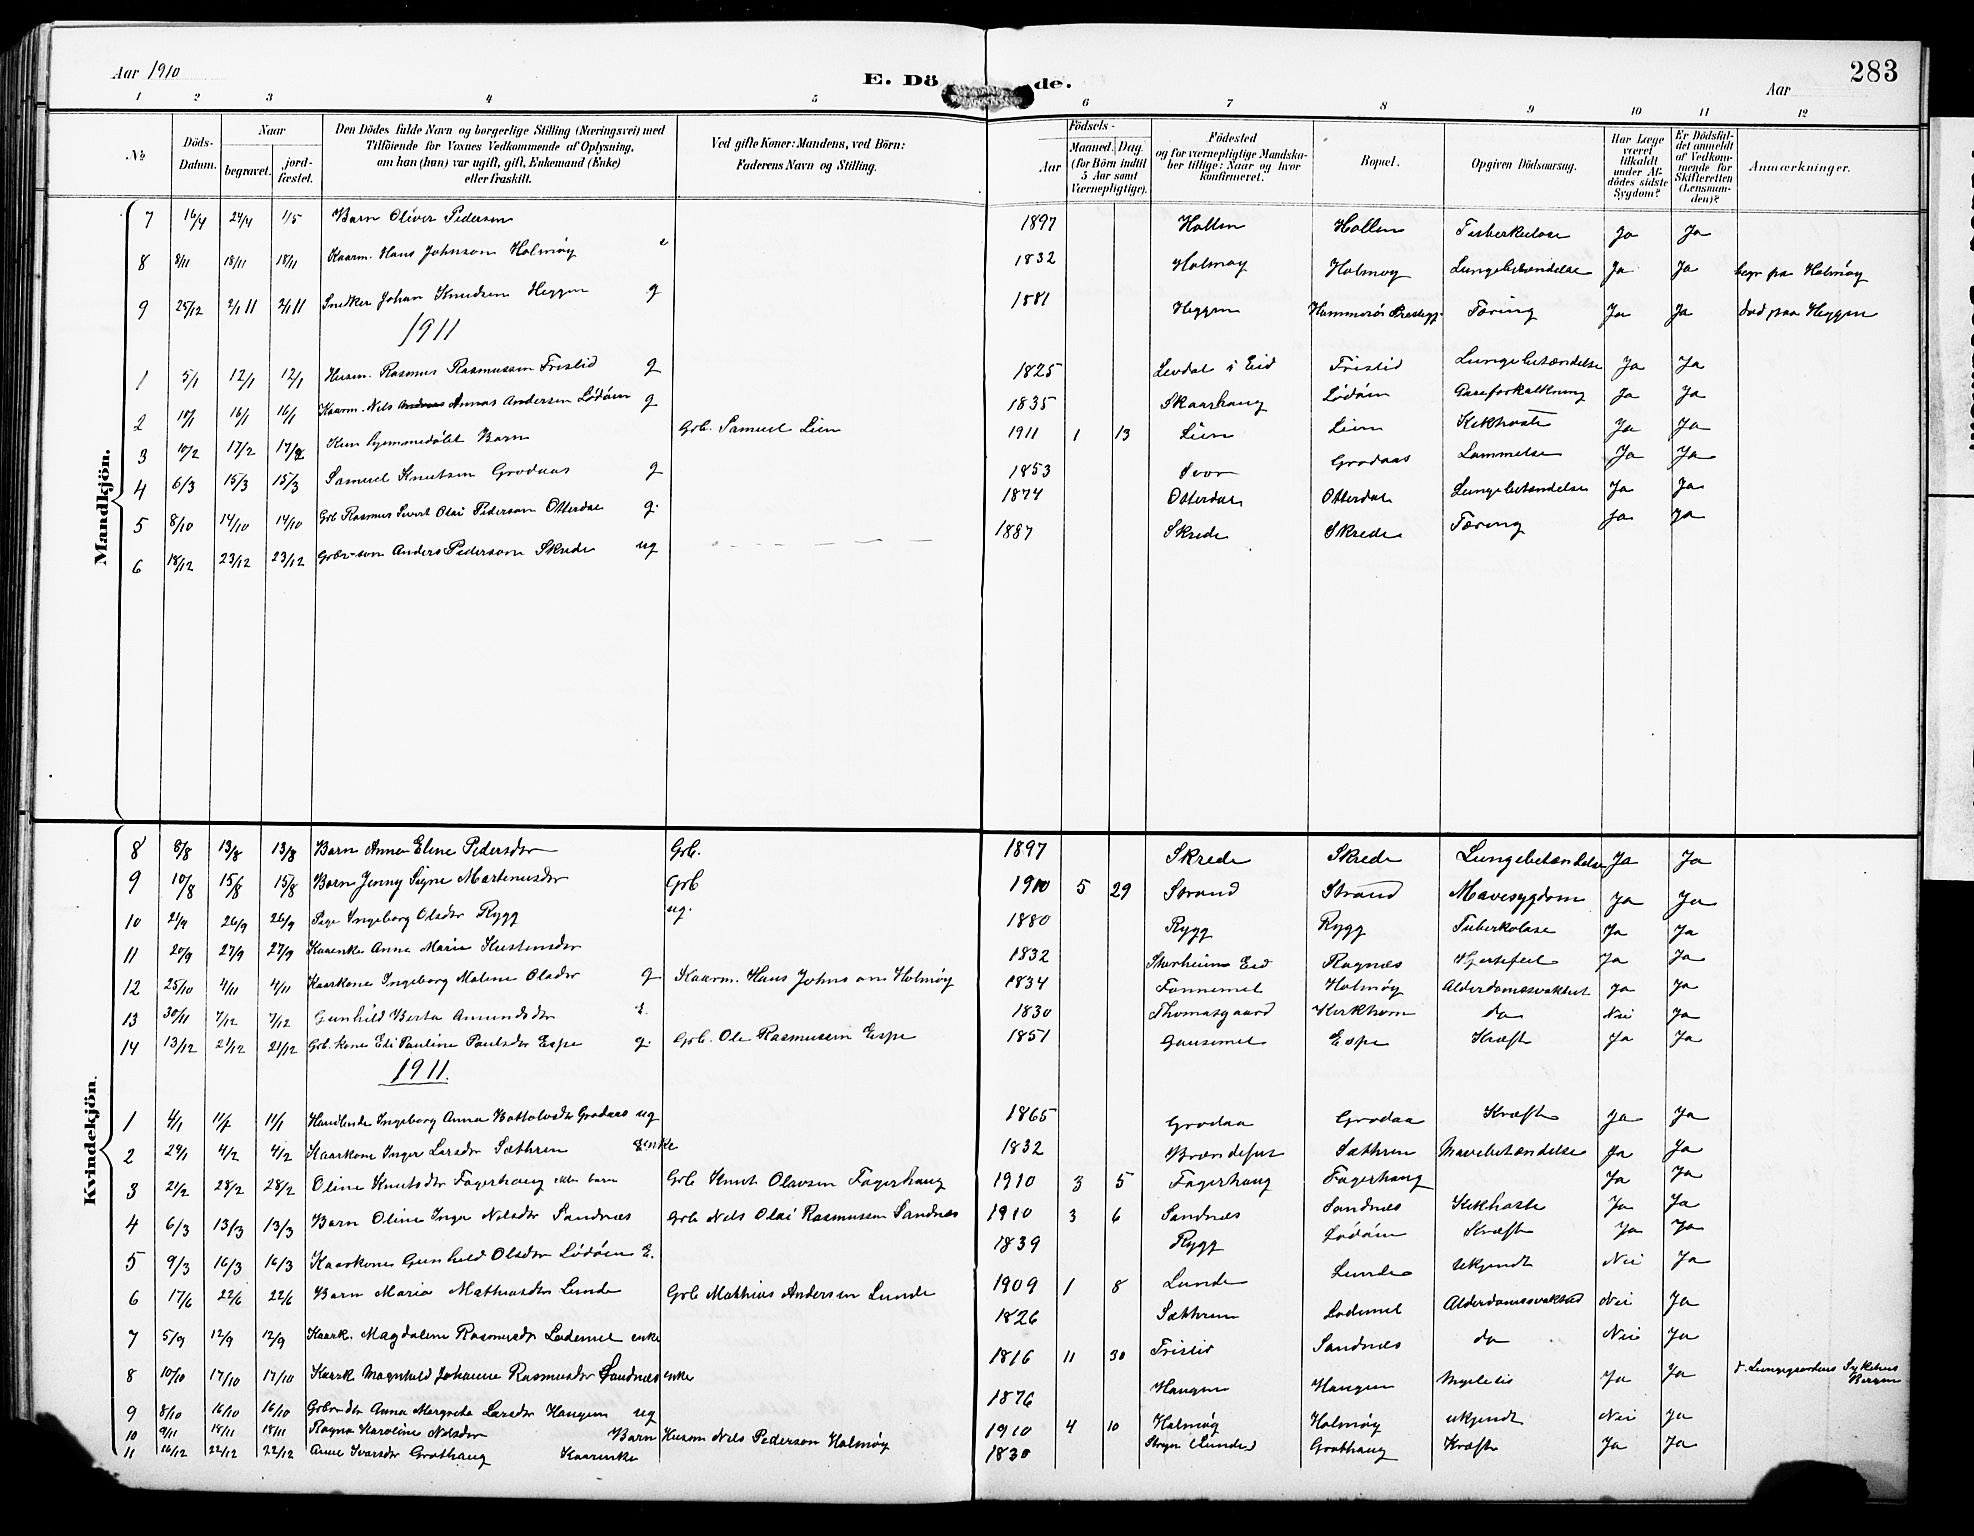 Aar 1910 E. Dö de. Aar 283
1 2 3 4 5 6 7 8 9 10 11 12
No. Döds-Datum. Naar begravet. jordfæstet. Den Dödes fulde Navn og borgerlige Stilling (Næringsvei) med Tilföiende for Voxnes Vedkommende af Oplysning, om han (hun) var ugift, gift, Enkemand (Enke) eller fraskilt. Ved gifte Koner: Mandens, ved Börn: Faderens Navn og Stilling. Födsels- Aar Maaned. Dag. (for Börn indtil 5 Aar samt Værnepligtige). Födested og for værnepligtige Mandskaber tillige: Naar og hvor konfirmeret. Bopæl. Opgiven Dödsaarsag. Har Læge været tilkaldt under Afdödes sidste Sygdom? Er Dödsfaldet anmeldt af Vedkommende for Skifteretten (Lensmanden)? Anmærkninger.
Mandkjön.
7 16/4 24/4 1/5 Barn Oliver Pedersen 1897 Hollen Hollen Tuberkulose Ja Ja
8 8/11 18/11 18/11 Kaarm. Hans Johnson Holmøy e 1832 Holmøy Holmøy Lungebetændelse Ja Ja begr paa Holmøy
9 25/12 2/1 11 2/1 11 Snedker Johan Knudsen Heggen g 1881 Heggen Hammerös Prestegj. Tæring Ja Ja død paa Heggen
1911
1 5/1 12/1 12/1 Husm. Rasmus Rasmussen Fristid g 1825 Levdal i Eid Fristid Lungebetændelse Ja Ja
2 10/1 16/1 16/1 Kaarm. Nils Annas Andersen Lødøen g 1835 Skaarhaug Lødøen Aareforkalkning Ja Ja
3 10/2 17/2 17/2 Kun hjemmedøbt Barn Grb. Samuel Lien 1911 1 13 Lien Lien Kikhoste Ja Ja
4 6/3 15/3 15/3 Samuel Knutsen Grodaas g 1853 Grodaas Lammelse Ja Ja
5 8/10 14/10 14/10 Grb Rasmus Sivert Olai Pederson Otterdal g. 1874 Otterdal Otterdal Lungebetændelse Ja Ja
6 18/12 23/12 23/12 Grbr-søn Anders Pederson Skrede ug 1887 Skrede Skrede Tæring Ja Ja
Kvindekjön.
8 8/8 13/8 13/8 Barn Anna Eline Pedersdtr Grb. 1897 Skrede Skrede Lungebetændelse Ja Ja
9 10/8 15/8 15/8 Barn Jenny Signe Martenusdtr Grb 1910 5 29 Strand Strand Mavesygdom Ja Ja
10 21/9 26/9 26/9 Pige Ingeborg Olsdtr Rygg ug. 1880 Rygg Rygg Tuberkolose Ja Ja
11 20/9 27/9 27/9 Kaarenke Anne Marie Kustensdtr 1832 Storheim Eid Rognæs Hjertefeil Ja Ja
12 25/10 4/11 4/11 Kaarkone Ingeborg Malene Olsdtr g Kaarm. Hans Johnson Holmøy 1834 Tonnemel Holmøy Alderdomssvakhet Ja Ja
13 30/11 7/12 7/12 Gunhild Berta Amundsdtr E. 1830 Thomasgaard Kirkhorn do Nei Ja
14 13/12 21/12 21/12 Grb. kone Eli Pauline Paulsdtr Espe g. Grb. Ole Rasmussen Espe 1851 Gausemel Espe Kræft Ja Ja
1911.
1 4/1 11/1 11/1 Handlende Ingeborg Anna Bottolvsdtr Grodaas ug 1865 Grodaa Grodaa Kræft Ja Ja
2 24/1 4/2 4/2 Kaarkone Inger Larsdtr Sæthren Enke 1832 Brændefur Sæthren Mavebetændelse Ja Ja
3 21/2 28/2 28/2 Oline Knutsdtr Fagerhaug ekte barn Grb Knut Olavsen Fagerhaug 1910 3 5 Fagerhaug Fagerhaug Ja Ja
4 6/3 13/3 13/3 Barn Oline Inga Nilsdtr Sandnæs Grb Nils Olai Rasmussen Sandnæs 1910 3 6 Sandnæs Sandnæs Kikhoste Ja Ja
5 9/3 16/3 16/3 Kaarkone Gunhild Olsdtr Lødøen E. 1839 Rygg Lødøen Kræft Ja Ja
6 17/6 22/6 22/6 Barn Maria Mathiasdtr Lunde Grb Mathias Andersen Lunde 1909 1 8 Lunde Lunde Ukjendt Nei Ja
7 5/9 12/9 12/9 Kaark. Magdalene Rasmusdtr Lødemel enke 1826 Sæthren Lødemel Alderdomssvakhed Nei Ja
8 10/10 17/10 17/10 Kaark Magnhild Johanne Rasmusdtr Sandnæs enke 1816 11 30 Fristid Sandnæs do Nei Ja
9 8/10 16/10 16/10 Grbr-dtr Anna Margreta Larsdtr Haugen ug 1876 Haugen Haugen Myelitis Ja Ja d. Lungegaardens Sykehus Bergen
10 9/11 18/11 18/11 Ragna Karoline Nilsdtr Barn Husm Nils Pederson Holmøy 1910 4 10 Holmøy Holmøy ukjendt Nei Ja
11 16/12 22/12 22/12 Anne Ivarsdtr Grothaug Kaarenke 1830 Stryn i Sunded Grothaug Kræft Ja Ja